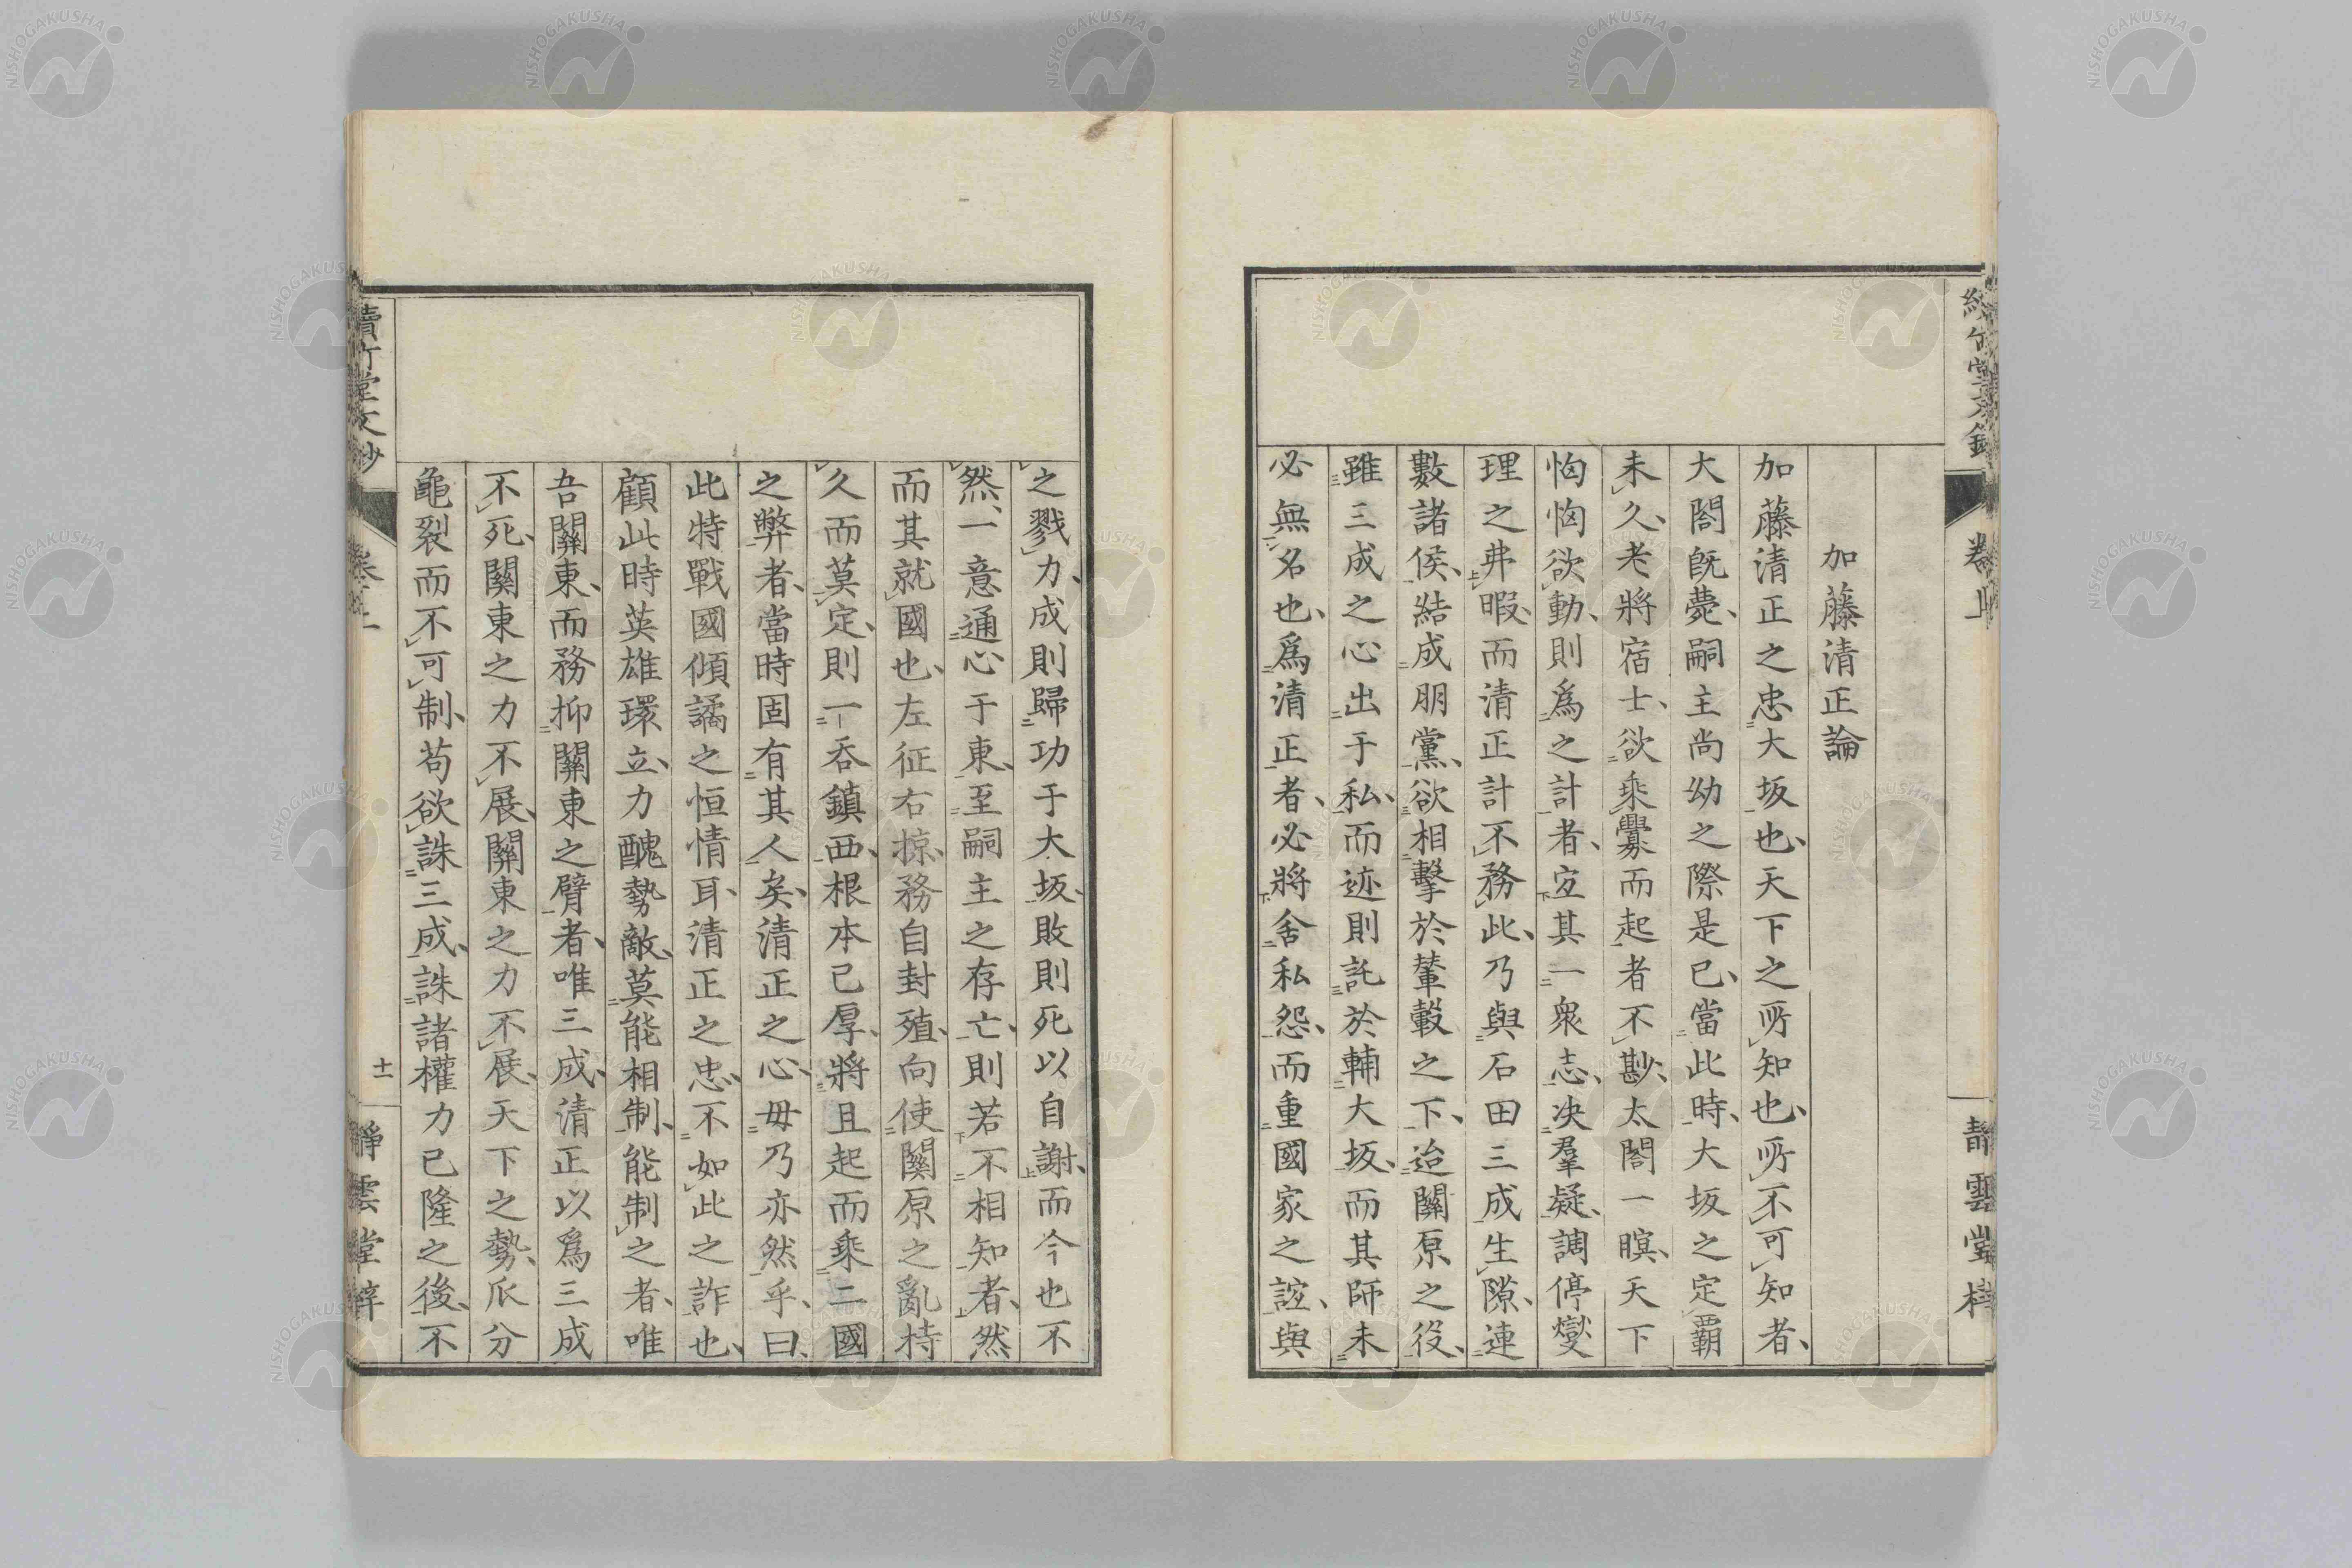 加藤清正論
加藤清正之忠大坂也、天下之所知也、所不可知者、
大閤既薨、嗣主尚幼之際是已、當此時、大坂之定霸
未久、老將宿士、欲乘釁而起者不尠、太閤一瞑、天下
恟恟欲動、則爲之計者、宜其一衆志、决羣疑、調停燮
理之弗暇、而清正計不務此、乃與石田三成生隙、連
數諸侯、結成朋黨、欲相擊於輦轂之下、迨關原之役、
雖三成之心出于私、而迹則託於輔大坂、而其師未
必無名也、爲清正者、必將舍私怨、而重國家之誼、與
之戮力、成則歸功于大坂、敗則死以自謝、而今也不
然、一意通心于東、至嗣主之存亡、則若不相知者、然
而其就國也、左征右掠、務自封殖、向使關原之亂持
久而莫定、則一吞鎮西、根本已厚、將且起而乘二國
之弊者、當時固有其人矣、清正之心、毋乃亦然乎、曰、
此特戰國傾譎之恒情耳、清正之忠、不如此之詐也、
顧此時英雄環立、力醜勢敵、莫能相制、能制之者、唯
吾關東、而務抑關東之臂者、唯三成、清正以爲三成
不死、關東之力不展、關東之力不展、天下之勢、瓜分
龜裂而不可制、苟欲誅三成、誅諸權力已隆之後、不
續竹堂文鈔
卷上
十一
靜雲堂梓